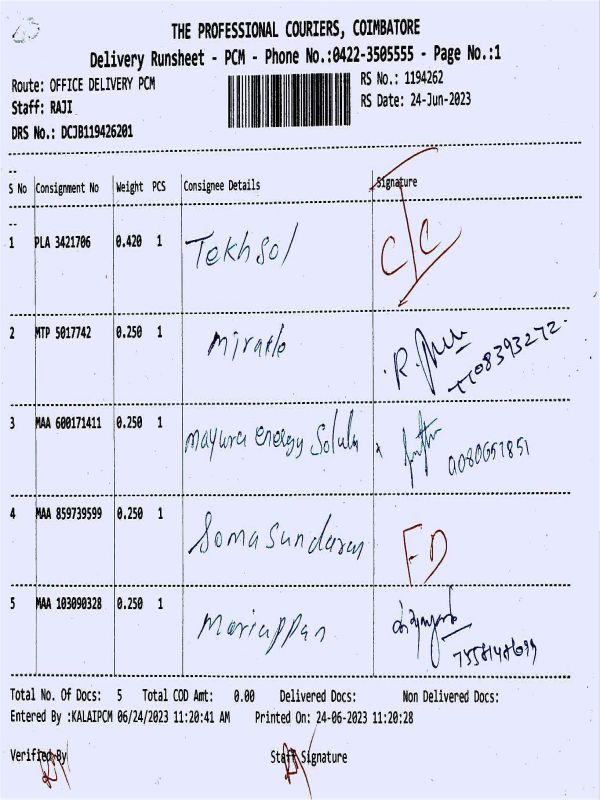 THE PROFESSIONAL COURIERS, COIMBATORE
Delivery Runsheet - PCM - Phone No.:0422-3505555 - Page No.:1
Route: OFFICE DELIVERY PCM RS No.: 1194262
Staff: RAJI RS Date: 24-Jun-2023
DRS No.: DCJB119426201
S No Consignment No Weight PCS Consignee Details Signature
1 PLA 3421706 0.420 1 Tekhsol C/C
2 MTP 5017742 0.250 1 R.
3 MAA 600171411 0.250 1 mayura energy
4 MAA 859739599 0.250 1 Somasundaran FD
5 MAA 103090328 0.250 1 Mariappan
Total No. Of Docs: 5 Total COD Amt: 0.00 Delivered Docs: Non Delivered Docs:
Entered By :KALAIPCM 06/24/2023 11:20:41 AM Printed On: 24-06-2023 11:20:28
Verified By Staff Signature